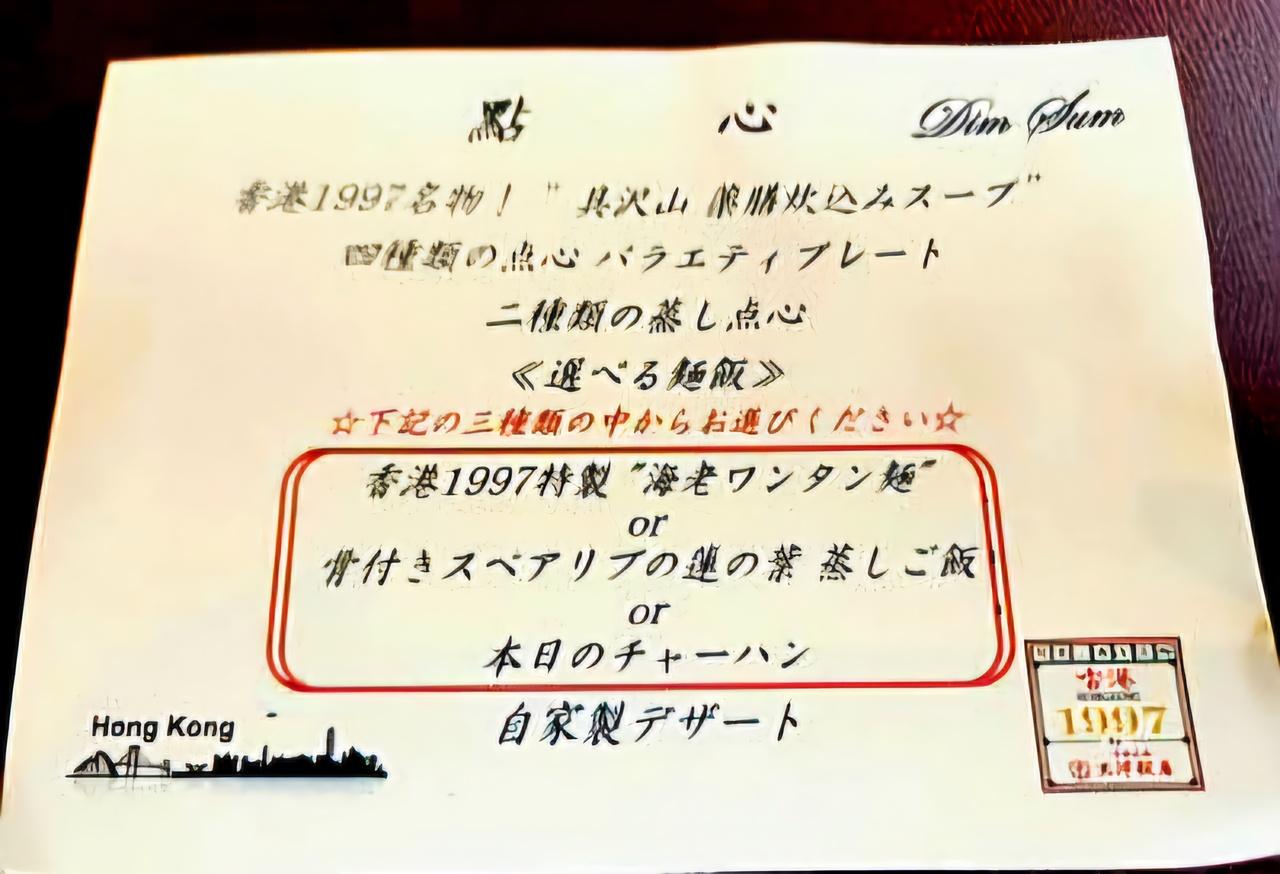 點 心 Dim Sum
香港1997名物！ "具沢山 炊込みスープ"
四種類の点心 バラエティプレート
二種類の蒸し点心
≪選べる麺飯≫
☆下記の三種類の中からお選びください☆
香港1997特製 "海老ワンタン麺"
or
骨付きスペアリブの蓮の葉 蒸しご飯
or
本日のチャーハン
自家製デザート
Hong Kong
香港
1997